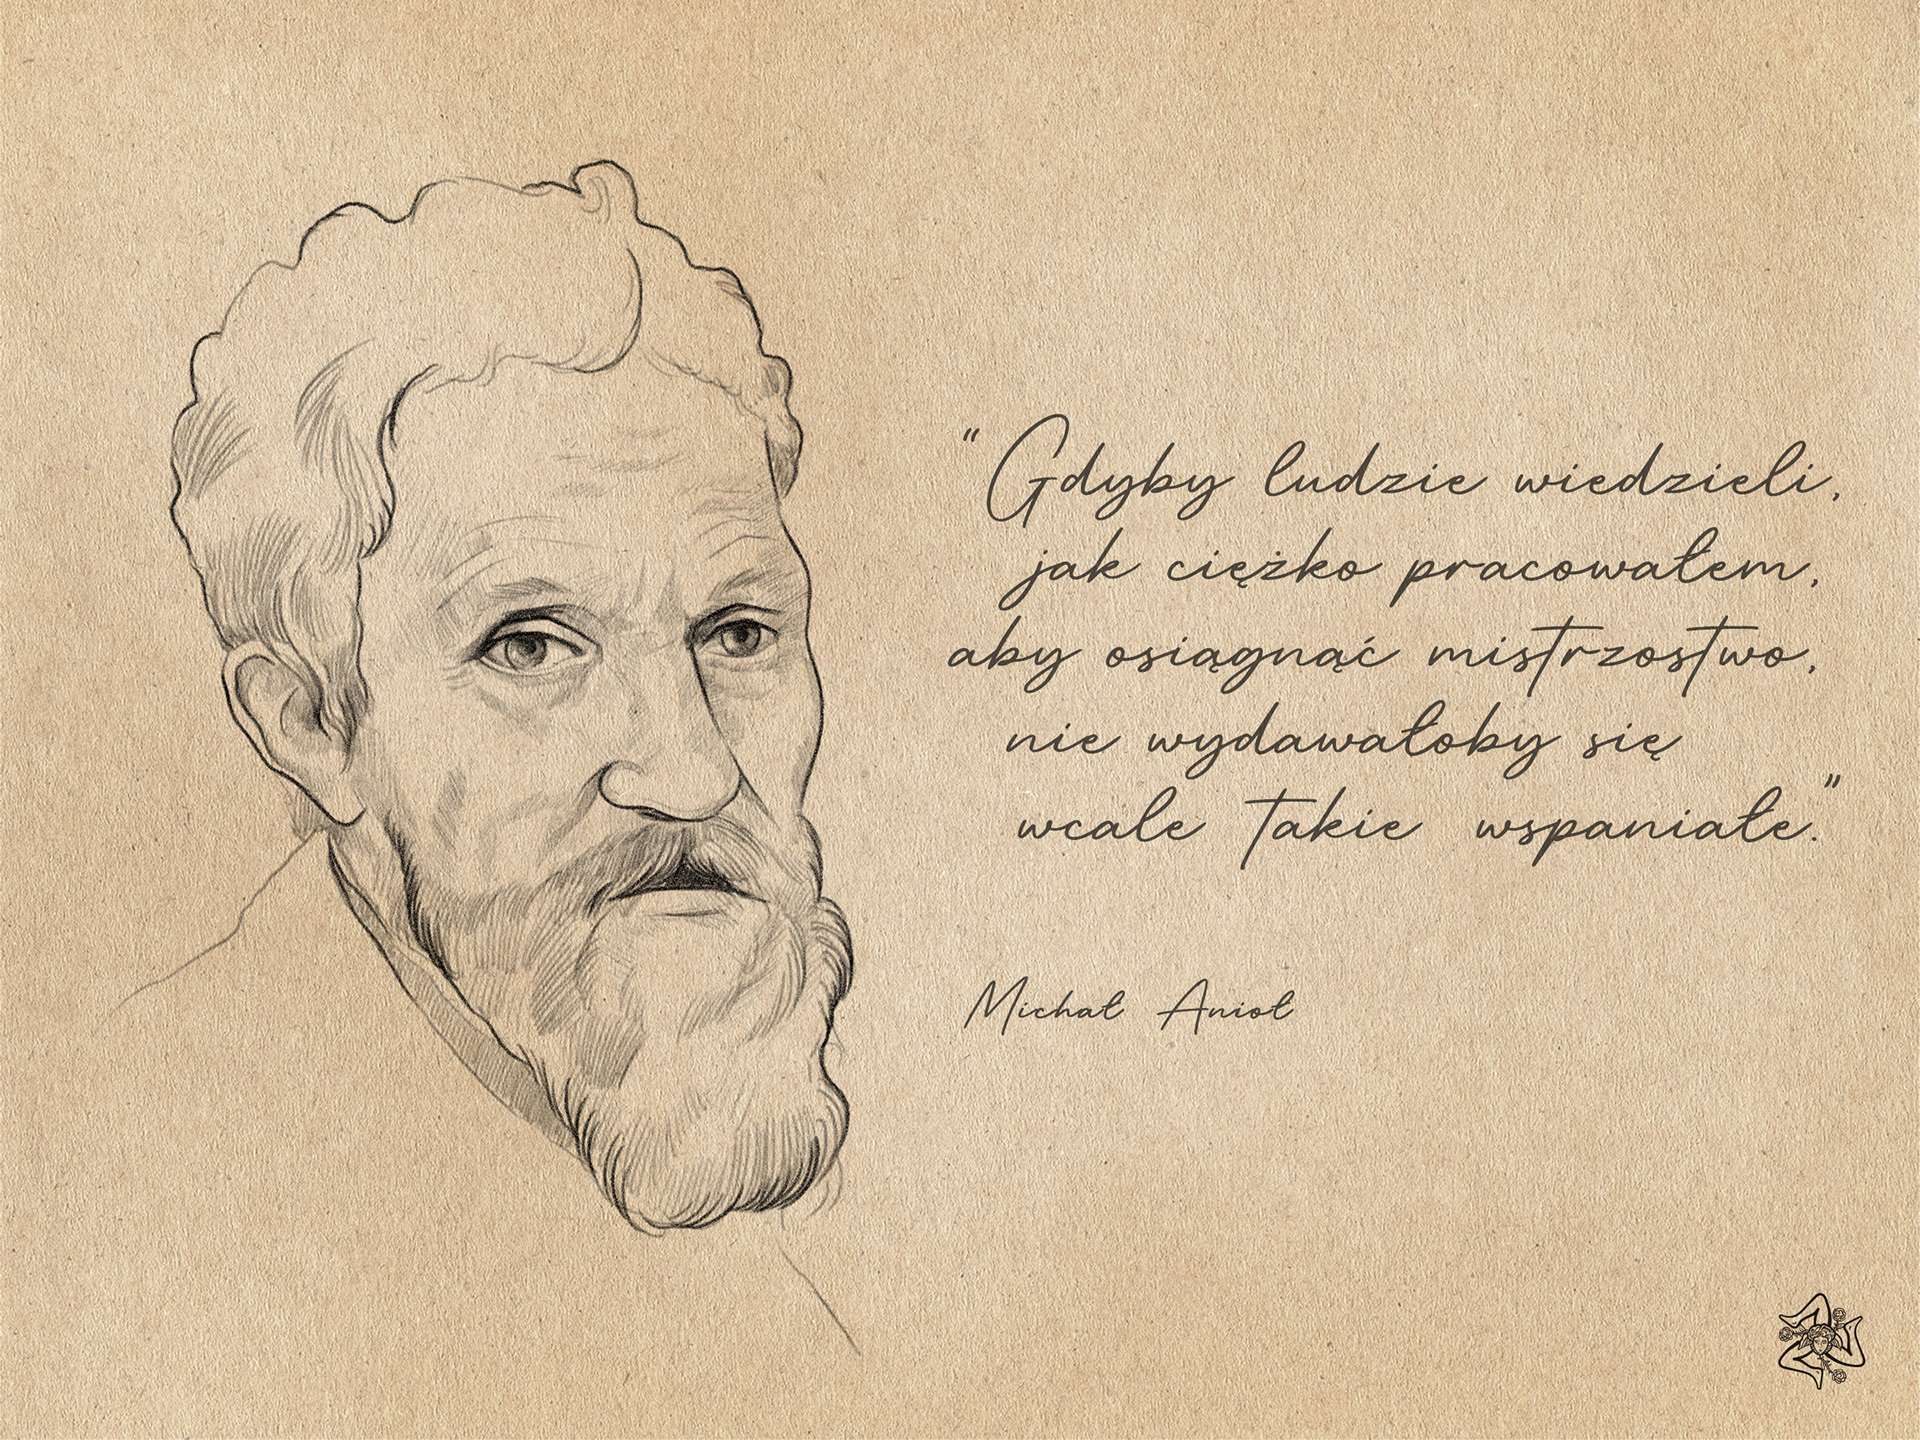 "Gdyby ludzie wiedzieli,
jak ciężko pracowałem,
aby osiągnąć mistrzostwo,
nie wydawałoby się
wcale takie wspaniałe."
Michał Anioł